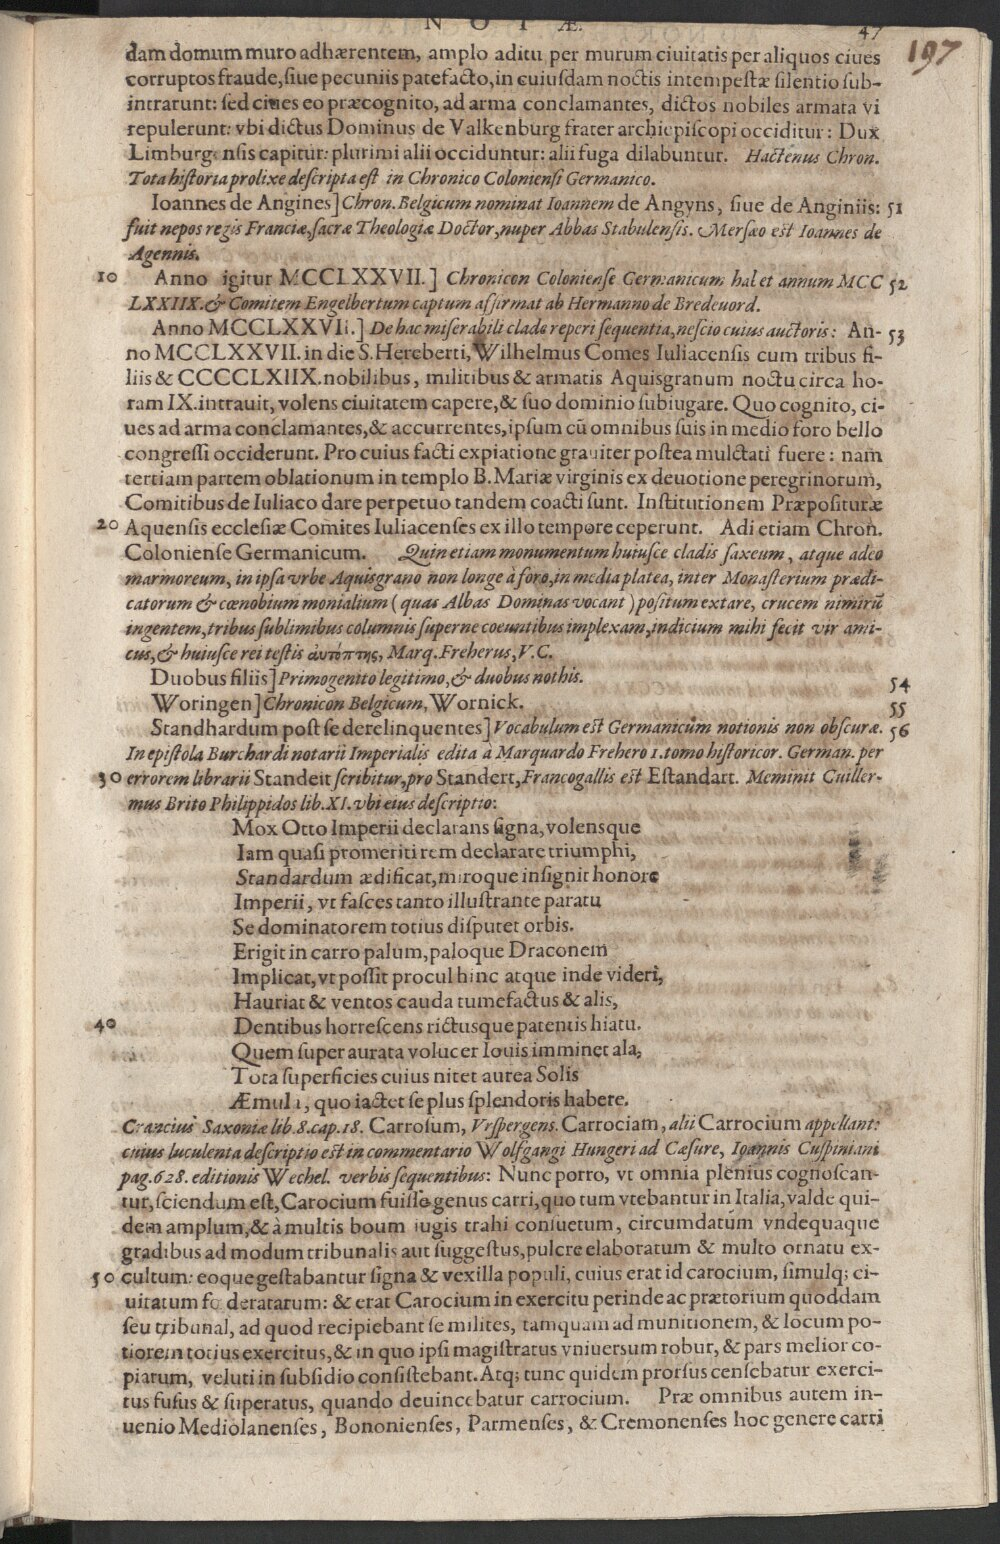 NOTÆ. 47
197
dam domum muro adhærentem, amplo aditu per murum ciuitatis per aliquos ciues
corruptos fraude, ſiue pecuniis patefacto, in cuiuſdam noctis intempeſtæ ſilentio ſub-
intrarunt: ſed ciues eo præcognito, ad arma conclamantes, dictos nobiles armata vi
repulerunt: vbi dictus Dominus de Valkenburg frater archiepiſcopi occiditur: Dux
Limburgenſis capitur: plurimi alii occiduntur: alii fuga dilabuntur. Hactenus Chron.
Tota hiſtoria prolixe deſcripta eſt in Chronico Colonienſi Germanico.
Ioannes de Angines] Chron. Belgicum nominat Ioannem de Angyns, ſiue de Anginiis: 51
fuit nepos regis Franciæ, ſacræ Theologiæ Doctor, nuper Abbas Stabulenſis. Merſæo eſt Ioannes de
Agennis.
10 Anno igitur MCCLXXVII.] Chronicon Colonienſe Germanicum habet annum MCC 52
LXXIIX. & Comitem Engelbertum captum aſſirmat ab Hermanno de Bredeuord.
Anno MCCLXXVII.] De hac miſerabili clade reperi ſequentia, neſcio cuius auctoris: An- 53
no MCCLXXVII. in die S. Hereberti, Wilhelmus Comes Iuliacenſis cum tribus fi-
liis & CCCCLXIIX. nobilibus, militibus & armatis Aquisgranum noctu circa ho-
ram IX. intrauit, volens ciuitatem capere, & ſuo dominio ſubiugare. Quo cognito, ci-
ues ad arma conclamantes, & accurrentes, ipſum cū omnibus ſuis in medio foro bello
congreſſi occiderunt. Pro cuius facti expiatione grauiter poſtea mulctati fuere: nam
tertiam partem oblationum in templo B. Mariæ virginis ex deuotione peregrinorum,
Comitibus de Iuliaco dare perpetuo tandem coacti ſunt. Inſtitutionem Præpoſituræ
20 Aquenſis eccleſiæ Comites Iuliacenſes ex illo tempore ceperunt. Adi etiam Chron.
Colonienſe Germanicum. Quin etiam monumentum huiuſce cladis ſaxeum, atque adeo
marmoreum, in ipſa vrbe Aquisgrano non longe à foro, in media platea, inter Monaſterium prædi-
catorum & cœnobium monialium (quas Albas Dominas vocant) poſitum extare, crucem nimirū
ingentem, tribus ſublimibus columnis ſuperne coeuntibus implexam, indicium mihi fecit vir ami-
cus, & huiuſce rei teſtis αυτόπτης, Marq. Freherus, V.C.
Duobus filiis] Primogenito legitimo, & duobus nothis. 54
Woringen] Chronicon Belgicum, Wornick. 55
Standhardum poſt ſe derelinquentes] Vocabulum eſt Germanicum notionis non obſcuræ. 56
In epiſtola Burchardi notarii Imperialis edita à Marquardo Frehero 1. tomo hiſtoricor. German. per
30 errorem librarii Standeit ſcribitur, pro Standert, Francogallis eſt Eſtandart. Meminit Cuiller-
mus Brito Philippidos lib. XI. vbi eius deſcriptio:
Mox Otto Imperii declarans ſigna, volensque
Iam quaſi promeriti rem declarare triumphi,
Standardum ædificat, miroque inſignit honore
Imperii, vt faſces tanto illuſtrante paratu
Se dominatorem totius diſputet orbis.
Erigit in carro palum, paloque Draconem
Implicat, vt poſſit procul hinc atque inde videri,
Hauriat & ventos cauda tumefactus & alis,
40 Dentibus horreſcens rictusque patentis hiatu.
Quem ſuper aurata volucer Iouis imminet ala,
Tota ſuperficies cuius nitet aurea Solis
Æmula, quo iactet ſe plus ſplendoris habere.
Crancius Saxoniæ lib. 8. cap. 18. Carroſum, Vrſpergens. Carrociam, alii Carrocium appellant:
cuius luculenta deſcriptio eſt in commentario Wolfgangi Hungeri ad Cæſure, Ioannis Cuſpiniani
pag. 628. editionis Wechel. verbis ſequentibus: Nunc porro, vt omnia plenius cognoſcan-
tur, ſciendum eſt, Carocium fuiſſe genus carri, quo tum vtebantur in Italia, valde qui-
dem amplum, & à multis boum iugis trahi conſuetum, circumdatum vndequaque
gradibus ad modum tribunalis aut ſuggeſtus, pulcre elaboratum & multo ornatu ex-
50 cultum: eoque geſtabantur ſigna & vexilla populi, cuius erat id carocium, ſimulq; ci-
uitatum fœderatarum: & erat Carocium in exercitu perinde ac prætorium quoddam
ſeu tribunal, ad quod recipiebant ſe milites, tamquam ad munitionem, & locum po-
tiorem totius exercitus, & in quo ipſi magiſtratus vniuerſum robur, & pars melior co-
piarum, veluti in ſubſidio conſiſtebant. Atq; tunc quidem prorſus cenſebatur exerci-
tus fuſus & ſuperatus, quando deuincebatur carrocium. Præ omnibus autem in-
uenio Mediolanenſes, Bononienſes, Parmenſes, & Cremonenſes hoc genere carri